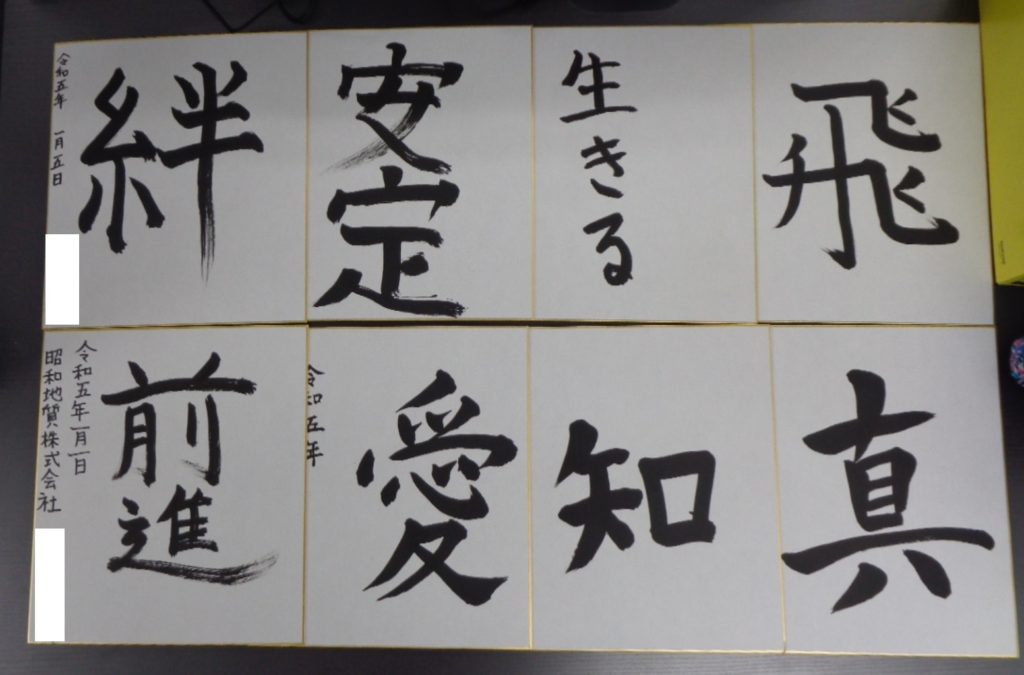 飛
生きる
安定
絆
令和五年 一月五日
真
知
愛
令和五年
前進
令和五年一月一日
昭和地質株式会社